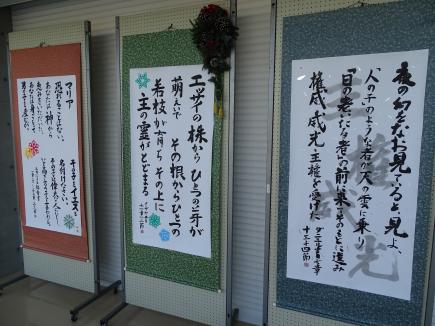 夜の幻をなお見ていると見よ、
「人の子」のような者が天の雲に乗り
「日の老いたる者」の前に来てそのもとに進み
権威、威光、王権を受けた
ダニエル書七章
十三~十四節
王権
威光
エッサイの株からひとつの芽が
萌えいで
その根からひとつの
若枝が育ち その上に
主の霊がとどまる
イザヤ書
マリア
恐れることはない。
あなたは神から
恵みをいただいた。
あなたは身ごもって
男の子を産むが、
その子をイエスと
名付けなさい。